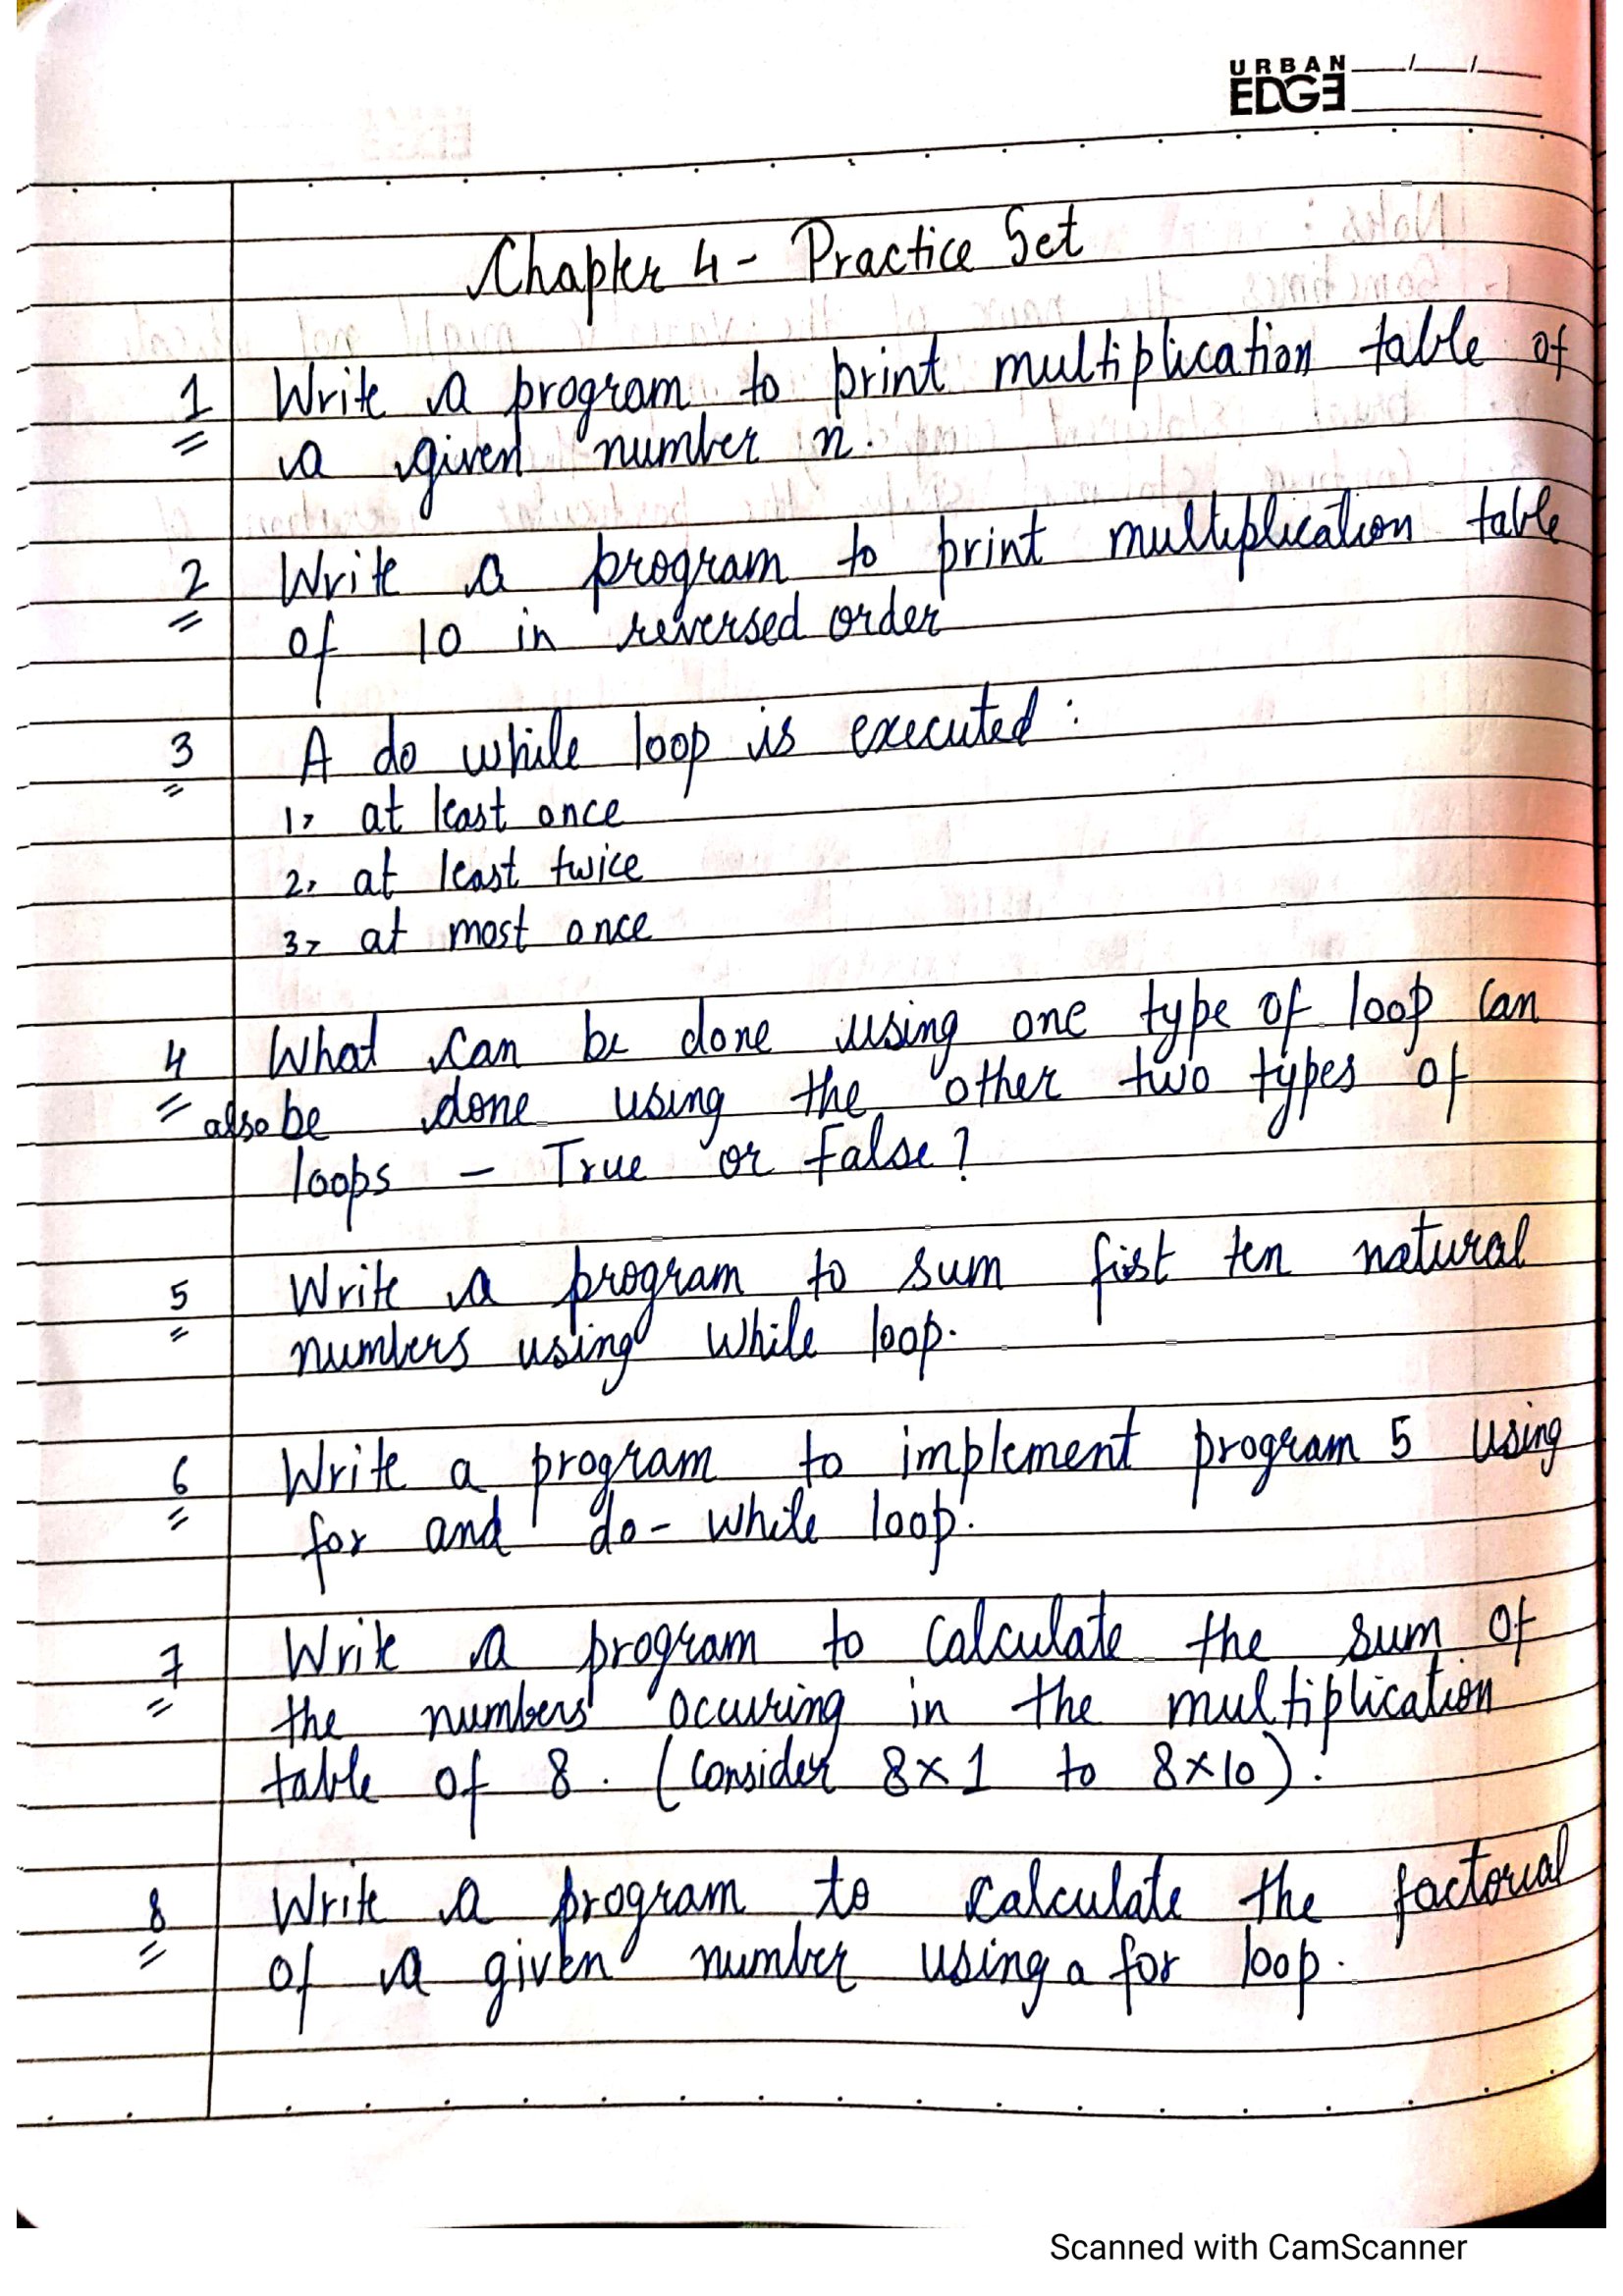 URBAN
EDGE
Chapter 4 - Practice Set
1 Write a program to print multiplication table of
a given number n.
2 Write a program to print multiplication table
of 10 in reversed order
3 A do while loop is executed :
1, at least once
2, at least twice
3, at most once
4 What can be done using one type of loop can
also be done using the other two types of
loops - True or False ?
5 Write a program to sum fist ten natural
numbers using while loop.
6 Write a program to implement program 5 using
for and do- while loop.
7 Write a program to calculate the sum of
the numbers occuring in the multiplication
table of 8. (Consider 8x1 to 8x10).
8 Write a program to calculate the factorial
of a given number using a for loop.
Scanned with CamScanner